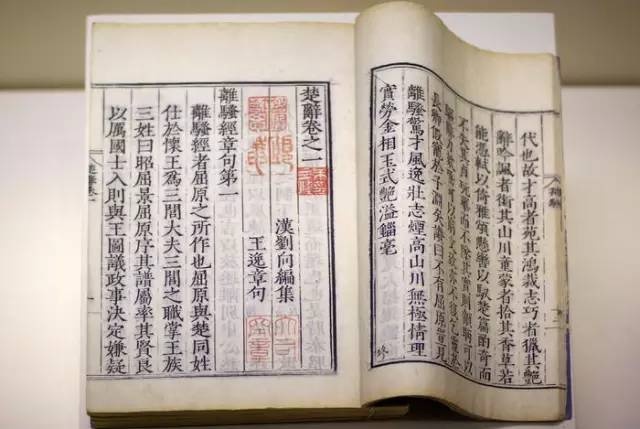 代也故才高者苑其鴻裁志巧者獵其艷
辭吟諷者銜其山川童蒙者拾其香草若
能憑軾以倚雅頌懸轡以馭楚篇酌奇而
不失其真玩華而不墜其實則顧盼可以
驅辭力欬唾可以窮文致亦不復乞靈於
長卿假寵於子淵矣贊曰不有屈原豈見
離騷驚才風逸壯志煙高山川無極情理
實勞金相玉式艷溢錙毫
楚辭卷之一
漢劉向編集
王逸章句
離騷經章句第一
離騷經者屈原之所作也屈原與楚同姓
仕於懷王為三閭大夫三閭之職掌王族
三姓曰昭屈景屈原序其譜屬率其賢良
以厲國士入則與王圖議政事決定嫌疑